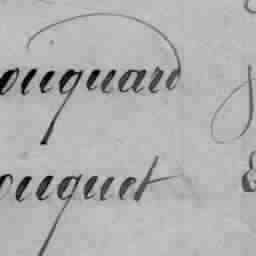 ouquard
ouquet